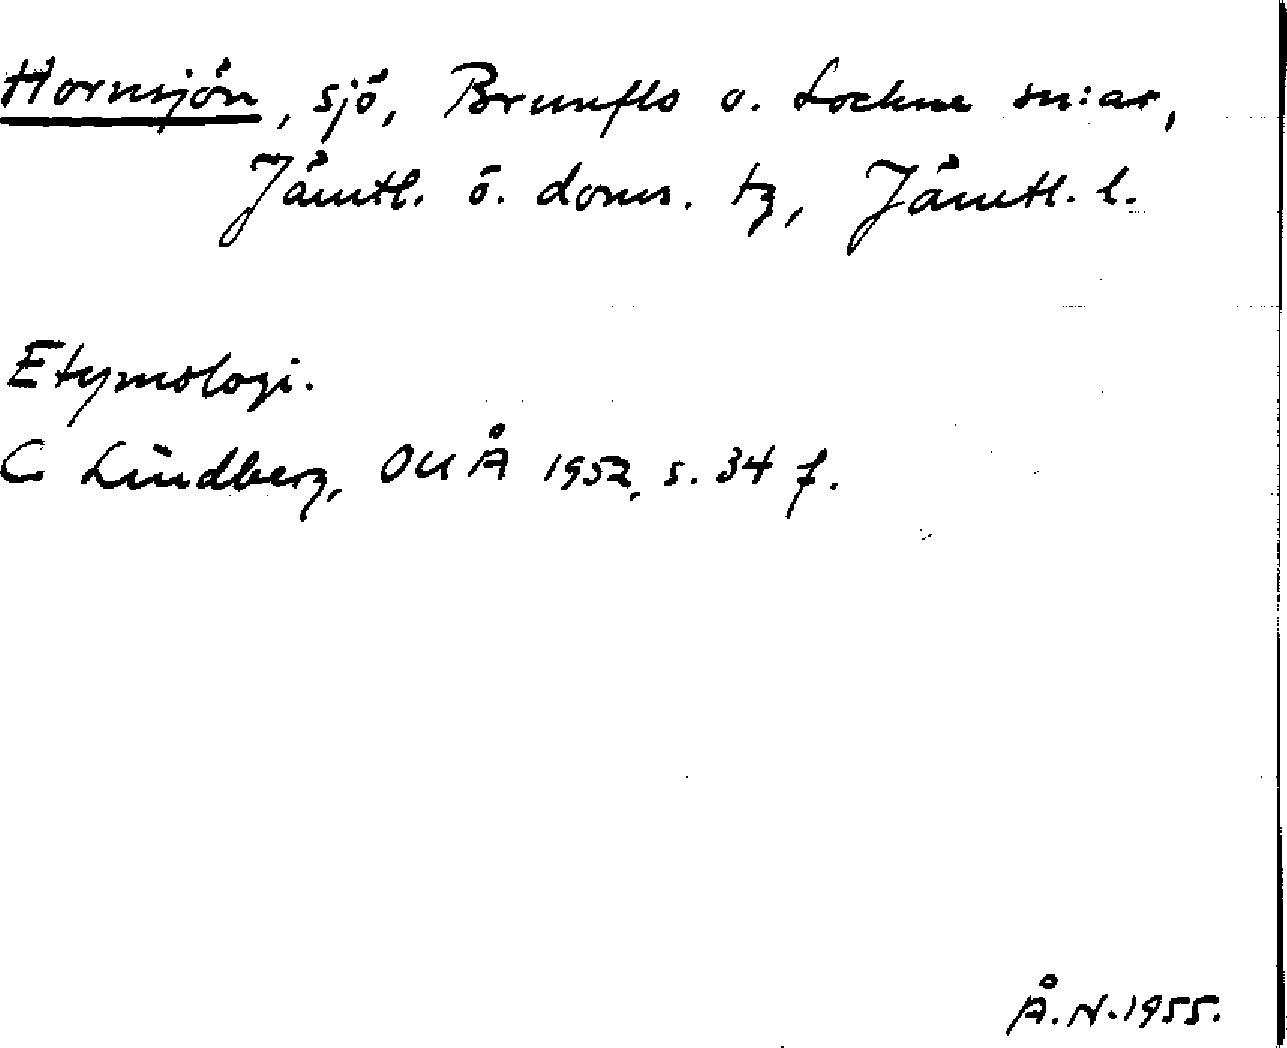 Hornsjön, sjö, Brunflo o. Lockne sn:ar,
Jämtl. ö. doms. tg, Jämtl. l.
Etymologi.
C Lindberg, OUÅ 1952, s. 34 f.
Å.N.1955.